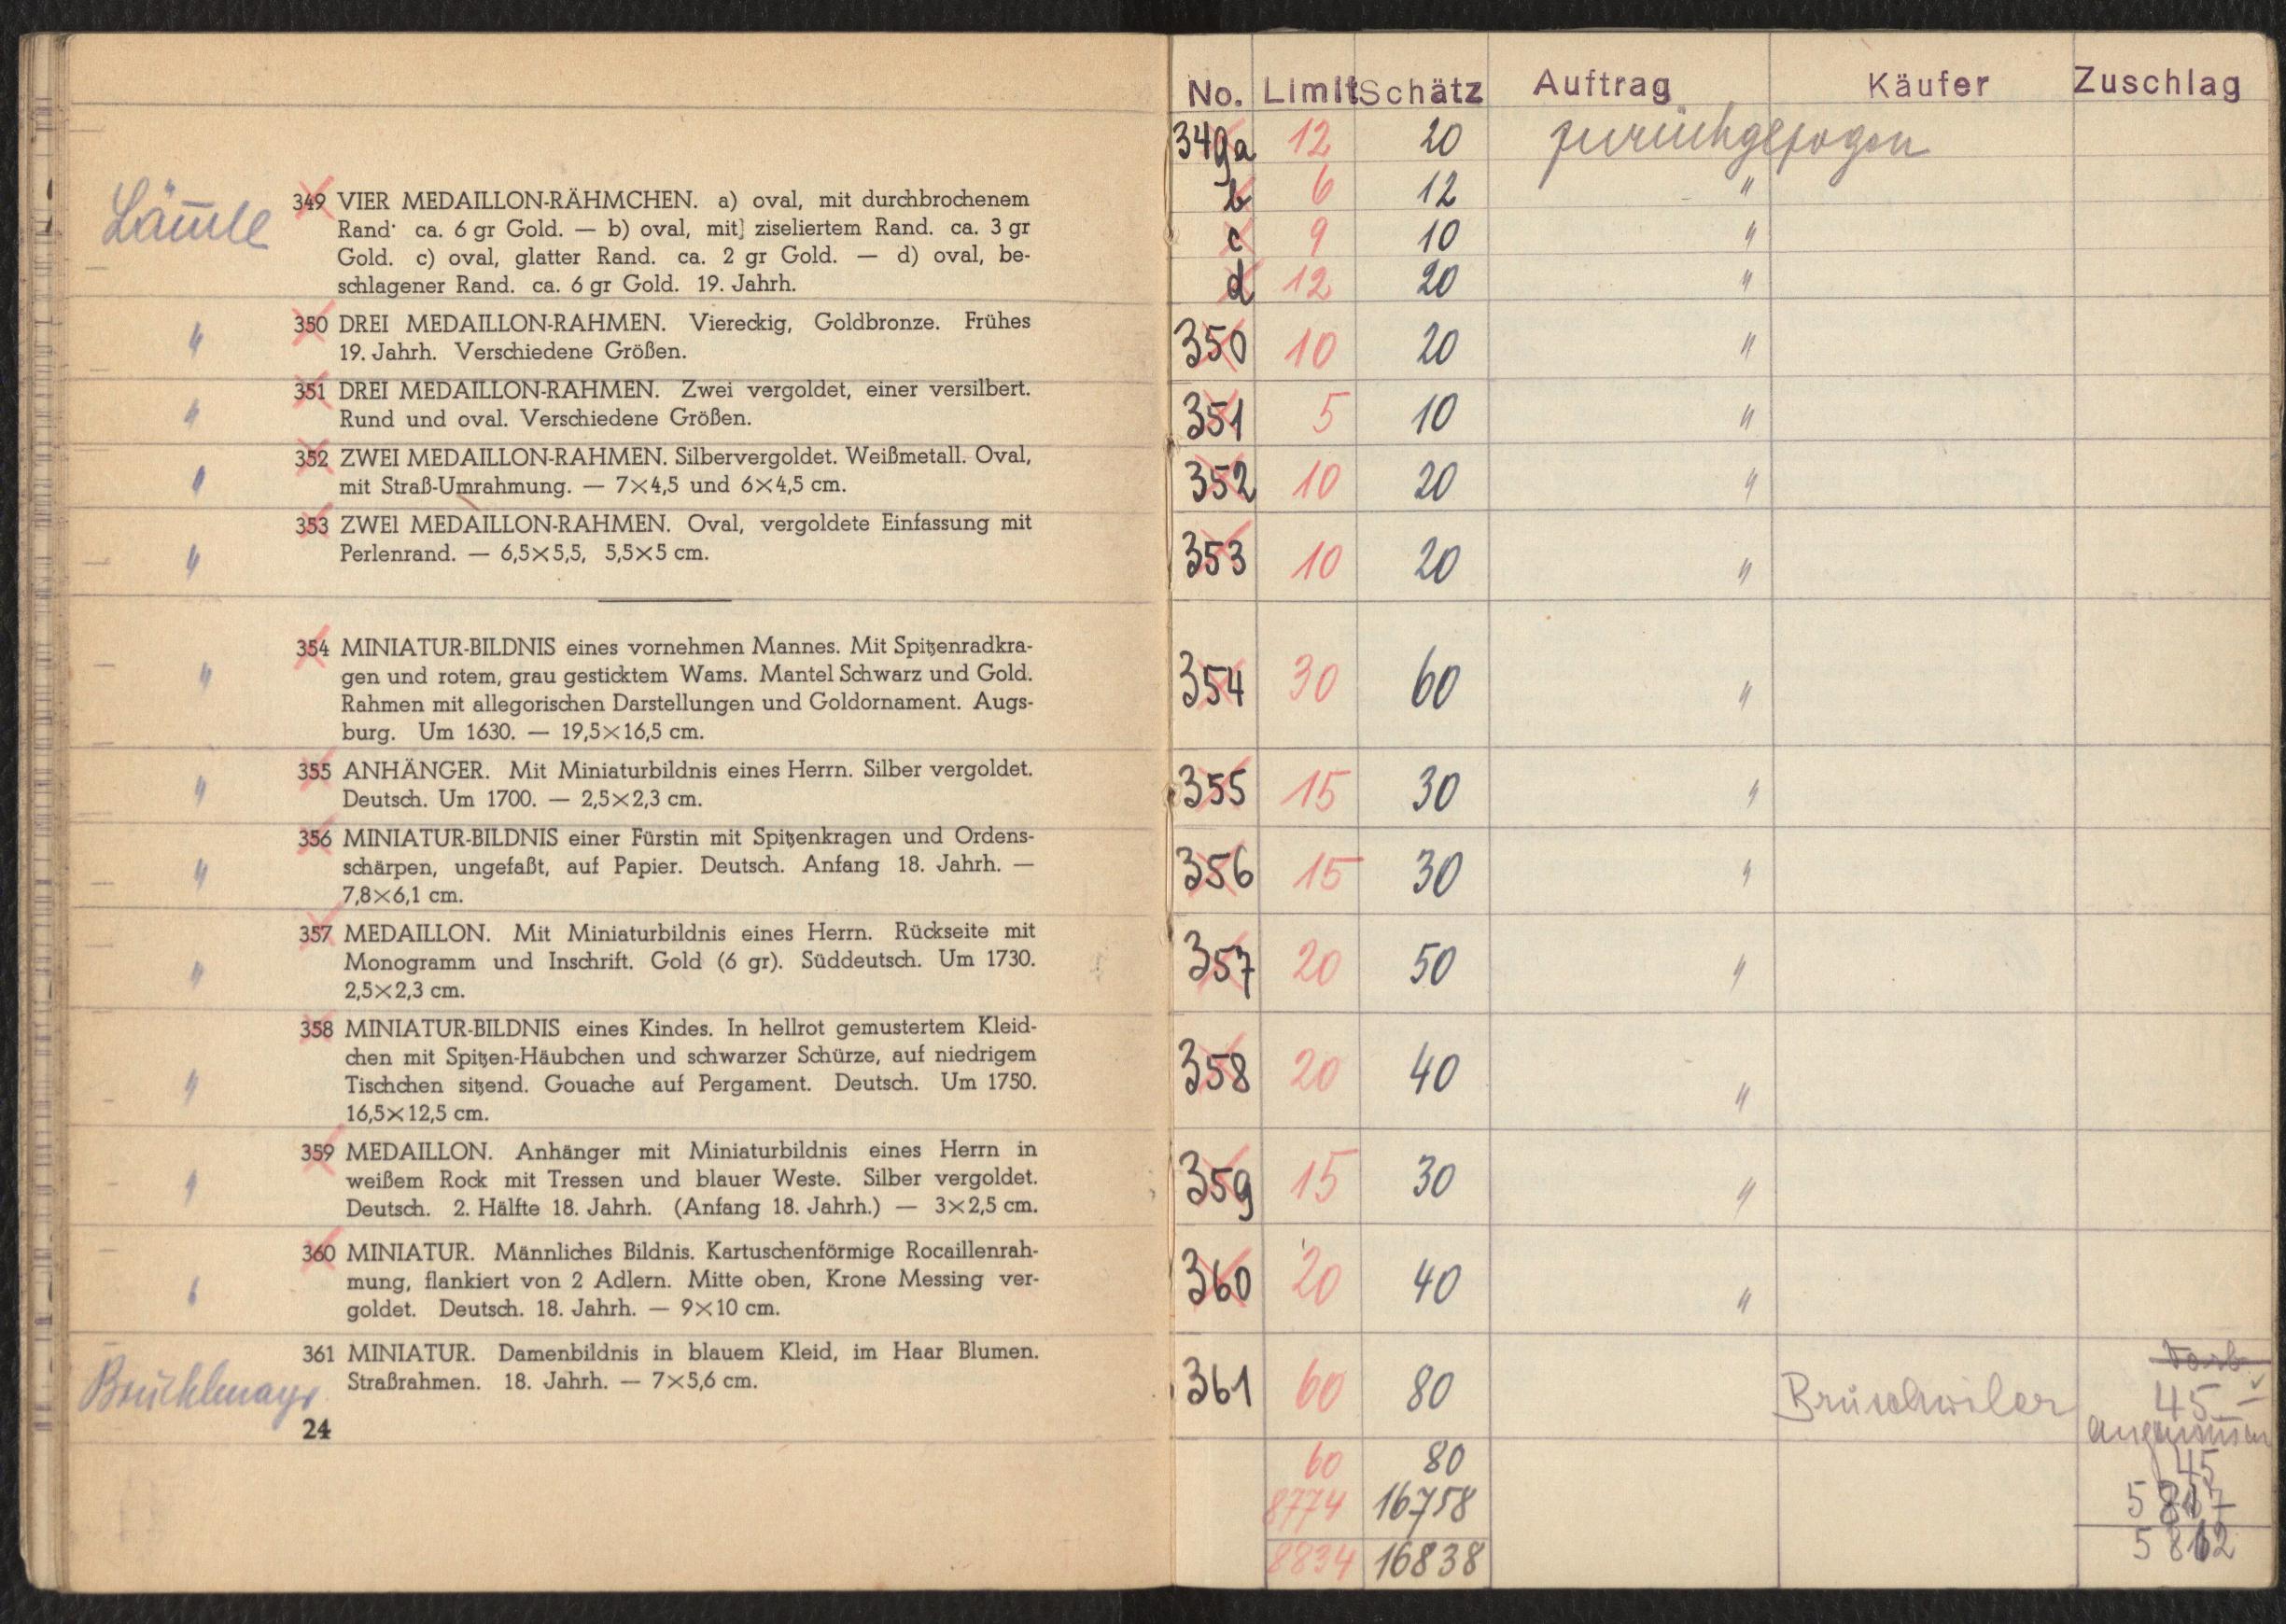 Lämle
349 VIER MEDAILLON-RÄHMCHEN. a) oval, mit durchbrochenem
Rand· ca. 6 gr Gold. — b) oval, mit] ziseliertem Rand. ca. 3 gr
Gold. c) oval, glatter Rand. ca. 2 gr Gold. — d) oval, be-
schlagener Rand. ca. 6 gr Gold. 19. Jahrh.
" 350 DREI MEDAILLON-RAHMEN. Viereckig, Goldbronze. Frühes
19. Jahrh. Verschiedene Größen.
" 351 DREI MEDAILLON-RAHMEN. Zwei vergoldet, einer versilbert.
Rund und oval. Verschiedene Größen.
" 352 ZWEI MEDAILLON-RAHMEN. Silbervergoldet. Weißmetall. Oval,
mit Straß-Umrahmung. — 7×4,5 und 6×4,5 cm.
" 353 ZWEI MEDAILLON-RAHMEN. Oval, vergoldete Einfassung mit
Perlenrand. — 6,5×5,5, 5,5×5 cm.
" 354 MINIATUR-BILDNIS eines vornehmen Mannes. Mit Spitzenradkra-
gen und rotem, grau gesticktem Wams. Mantel Schwarz und Gold.
Rahmen mit allegorischen Darstellungen und Goldornament. Augs-
burg. Um 1630. — 19,5×16,5 cm.
" 355 ANHÄNGER. Mit Miniaturbildnis eines Herrn. Silber vergoldet.
Deutsch. Um 1700. — 2,5×2,3 cm.
" 356 MINIATUR-BILDNIS einer Fürstin mit Spitzenkragen und Ordens-
schärpen, ungefaßt, auf Papier. Deutsch. Anfang 18. Jahrh. —
7,8×6,1 cm.
" 357 MEDAILLON. Mit Miniaturbildnis eines Herrn. Rückseite mit
Monogramm und Inschrift. Gold (6 gr). Süddeutsch. Um 1730.
2,5×2,3 cm.
" 358 MINIATUR-BILDNIS eines Kindes. In hellrot gemustertem Kleid-
chen mit Spitzen-Häubchen und schwarzer Schürze, auf niedrigem
Tischchen sitzend. Gouache auf Pergament. Deutsch. Um 1750.
16,5×12,5 cm.
" 359 MEDAILLON. Anhänger mit Miniaturbildnis eines Herrn in
weißem Rock mit Tressen und blauer Weste. Silber vergoldet.
Deutsch. 2. Hälfte 18. Jahrh. (Anfang 18. Jahrh.) — 3×2,5 cm.
" 360 MINIATUR. Männliches Bildnis. Kartuschenförmige Rocaillenrah-
mung, flankiert von 2 Adlern. Mitte oben, Krone Messing ver-
goldet. Deutsch. 18. Jahrh. — 9×10 cm.
361 MINIATUR. Damenbildnis in blauem Kleid, im Haar Blumen.
Straßrahmen. 18. Jahrh. — 7×5,6 cm.
24
No. Limit Schätz Auftrag Käufer Zuschlag
349a 12 20 zurückgezogen
b 6 12 "
c 9 10 "
d 12 20 "
350 10 20 "
351 5 10 "
352 10 20 "
353 10 20 "
354 30 60 "
355 15 30 "
356 15 30 "
357 20 50 "
358 20 40 "
359 15 30 "
360 20 40 "
361 60 80 Brüschwiler 45.—
60 80 45
8774 16758 5817
8834 16838 5862